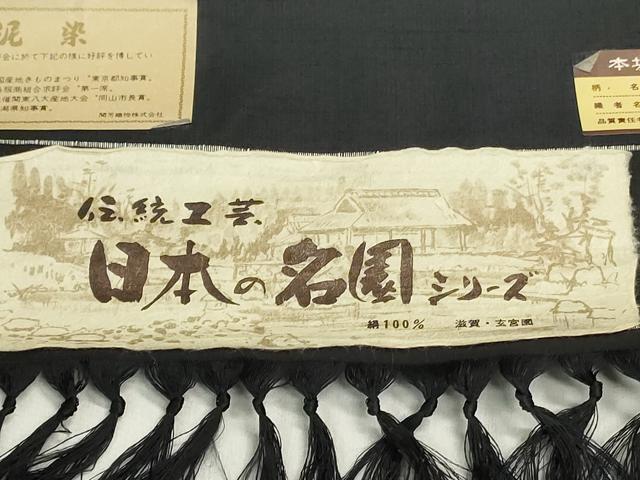 泥染
会に於て下記の様に好評を博してい
国産地きものまつり "東京都知事賞。
呉服商組合求評会 "第一席。
催関東八大産地大会 "岡山市長賞。
潟県知事賞。
関芳織物株式会社
本場
柄・名
織者名
品質責任者
伝統工芸
日本の名園シリーズ
絹100% 滋賀・玄宮園